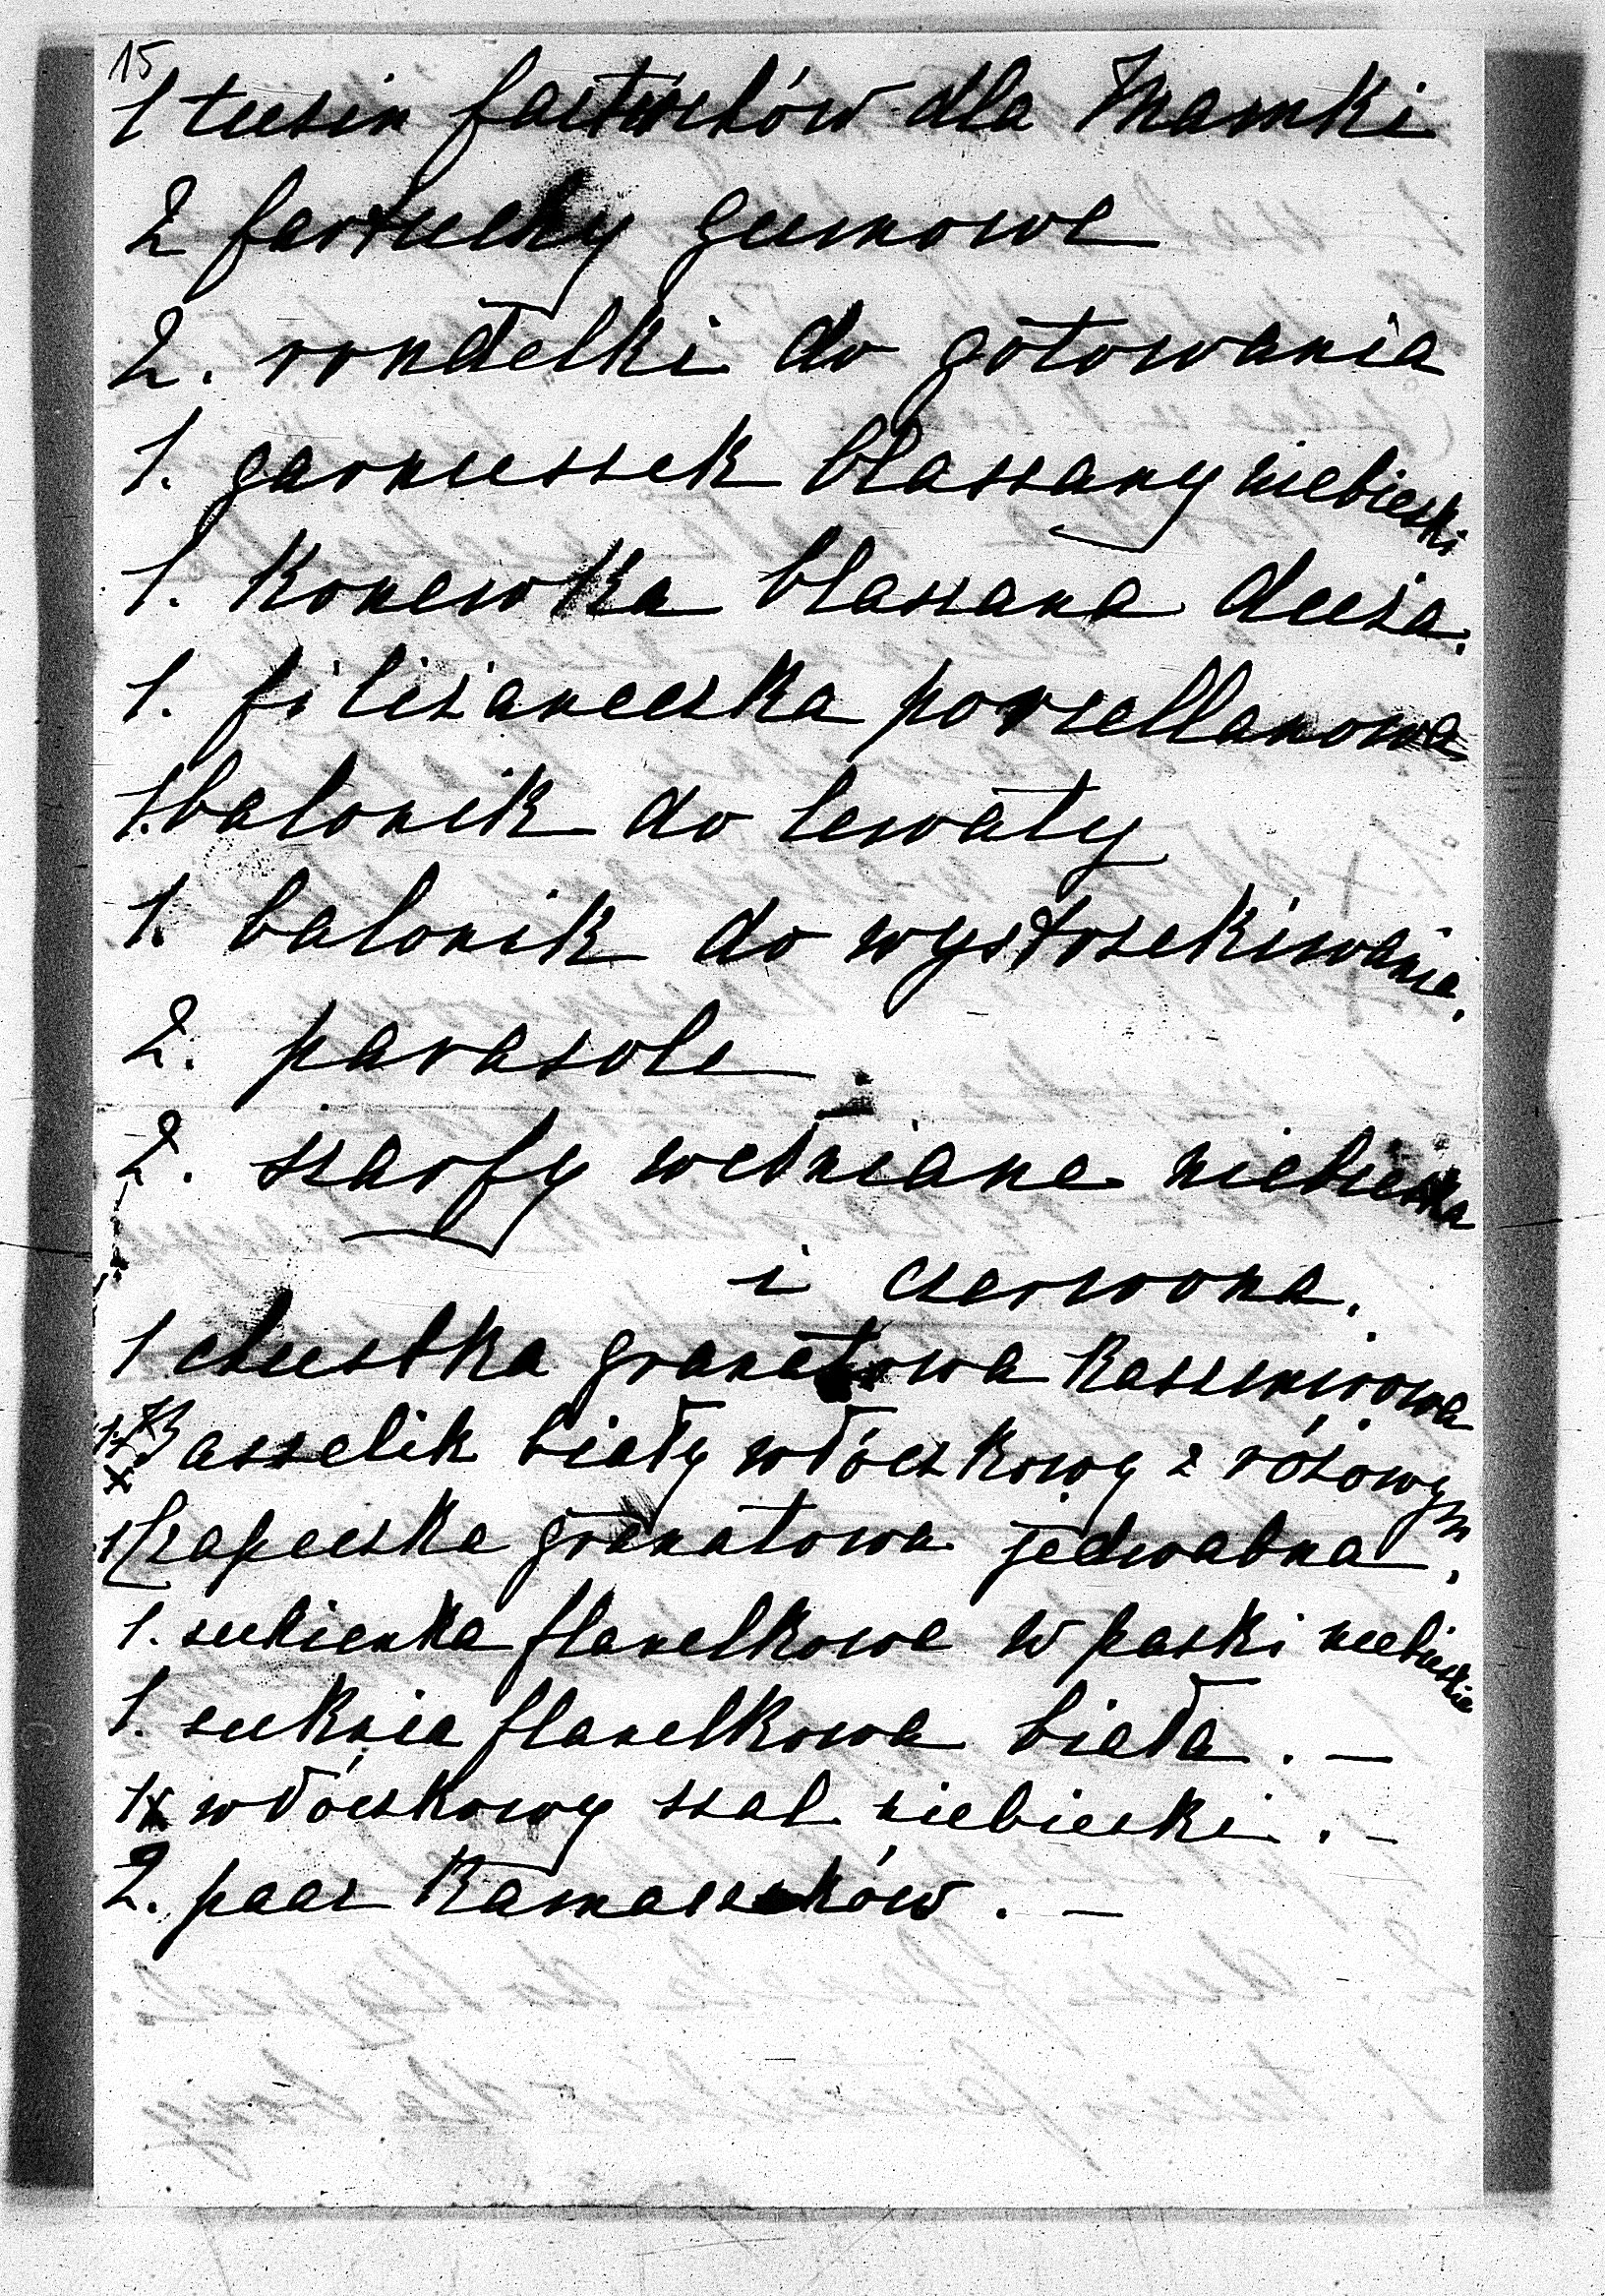 15
1 tuzin fartuchów dla Mamki
2 fartuchy gumowe
2. rondelki do gotowania
1. garnuszek blaszany niebieski
1. konewka blaszana duża.
1. filiżaneczka porcellanowa
1. balonik do lewaty
1. balonik do wystrzekiwania.
2. parasole.
2. szarfy wełniane niebieska
i czerwona.
1 chustka granatowa kaszmirowa
1. x Kaszelik biały włóczkowy z różowym.
1 Czapeczka granatowa jedwabna
1. sukienka flanelkowa w paski niebieskie
1. suknia flanelkowa biała. —
1x włóczkowy szal niebieski. —
2. paar kamaszków. —